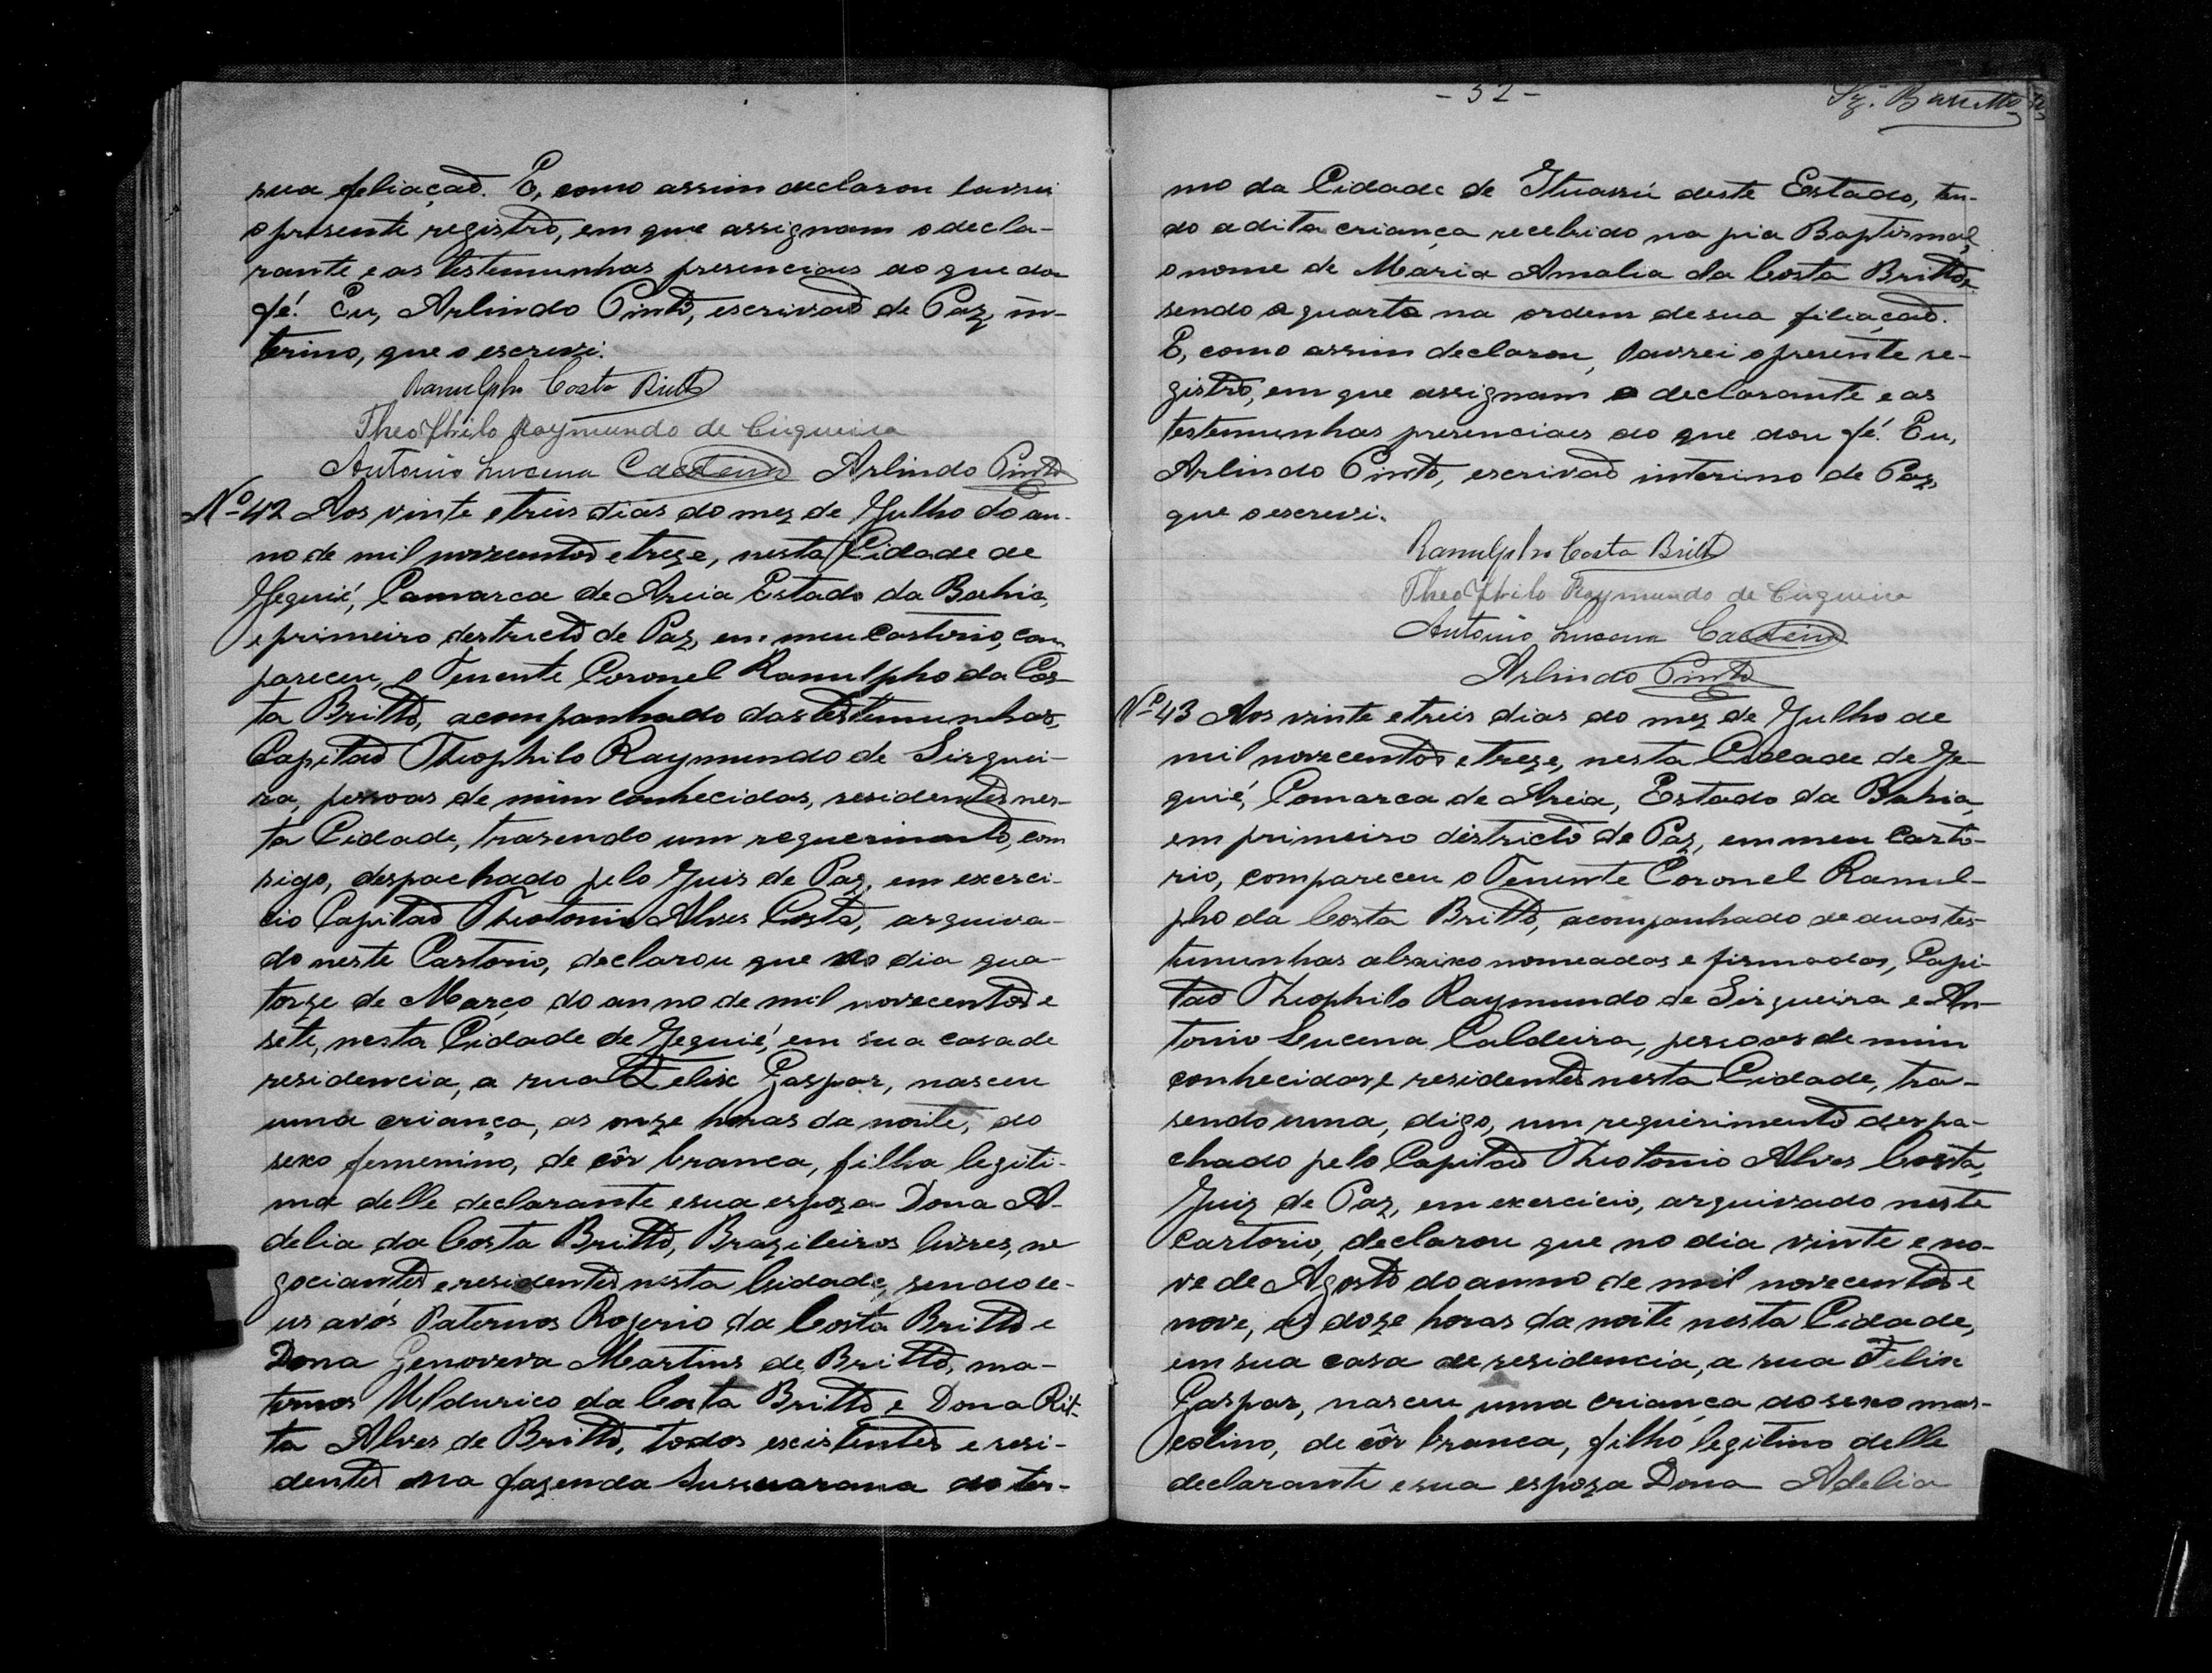 sua feliação. E, como assim declarou lavrei
o presente registro, em que assignam o decla-
rante e as testemunhas presenciaes do que dou
fé. Eu, Arlindo Pinto, escrivão de Paz, in-
terino, que o escrevi.
Ranulpho Costa Britto
Theophilo Raymundo de Cirqueira
Antonio Lucena Caldeira Arlindo Pinto
Nº 42 Aos vinte e treis dias do mez de Julho do an-
no de mil novecentos e treze, nesta Cidade de
Jequié, Comarca de Areia Estado da Bahia,
e primeiro destricto de Paz, em meu Cartorio, com
pareceu, o Tenente Coronel Ranulpho da Cos-
ta Britto, acompanhado das testemunhas,
Capitão Theophilo Raymundo de Sirquei-
ra, pessoas de mim conhecidas, residentes nes-
ta Cidade, trasendo um requerimento, com
sigo, despachado pelo Juis de Paz, em exerci-
cio Capitão Theotonio Alves Costa, arquiva-
do neste Cartorio, declarou que no dia qua-
torze de Março do anno de mil novecentos e
séte, nesta Cidade de Jequié, em sua casa de
residencia, a rua Felix Gaspar, nasceu
uma criança, as onze horas da noite, do
sexo femenino, de côr branca, filha legiti-
ma delle declarante e sua espoza Dona A-
delia da Costa Britto, Brazileiros livres, ne
gociantes e residentes nesta Cidade, sendo se-
us avós Paternos Rogerio da Costa Britto e
Dona Genoveva Martins de Britto, ma-
ternos Uldurico da Costa Britto e Dona Rit-
ta Alves de Britto, todos existentes e resi-
dentes na fazenda Sussuarana do ter-
- 52 -
Barretto
mo da Cidade de Ituassú deste Estado, ten-
do a dita criança recebido na pia Baptismal,
o nome de Maria Amalia da Costa Britto,
sendo a quarta na ordem de sua filiação.
E, como assim declarou, lavrei o presente re-
gistro, em que assignam o declarante e as
testemunhas presenciaes do que dou fé. Eu,
Arlindo Pinto, escrivão interino de Paz,
que o escrevi.
Ranulpho Costa Britto
Theophilo Raymundo de Cirqueira
Antonio Lucena Caldeira
Arlindo Pinto
Nº 43 Aos vinte e treis dias do mez de Julho de
mil novecentos e treze, nesta Cidade de Je-
quié, Comarca de Areia, Estado da Bahia,
em primeiro districto de Paz, em meu Carto-
rio, compareceu o Tenente Coronel Ranul-
pho da Costa Britto, acompanhado de duas tes-
temunhas abaixo nomeadas e firmadas, Capi-
tão Theophilo Raymundo de Sirqueira e An-
tonio Lucena Caldeira, pessoas de mim
conhecidas, e residentes nesta Cidade, tra-
sendo uma, digo, um requirimento despa-
chado pelo Capitão Theotonio Alves Costa,
Juiz de Paz, em exercicio, arquivado neste
Cartorio, declarou que no dia vinte e no-
ve de Agosto do anno de mil novecentos e
nove, as doze horas da noite nesta Cidade,
em sua casa de residencia, a rua Felix
Gaspar, nasceu uma criança do sexo mas-
colino, de côr branca, filho legitimo delle
declarante e sua espoza Dona Adelia